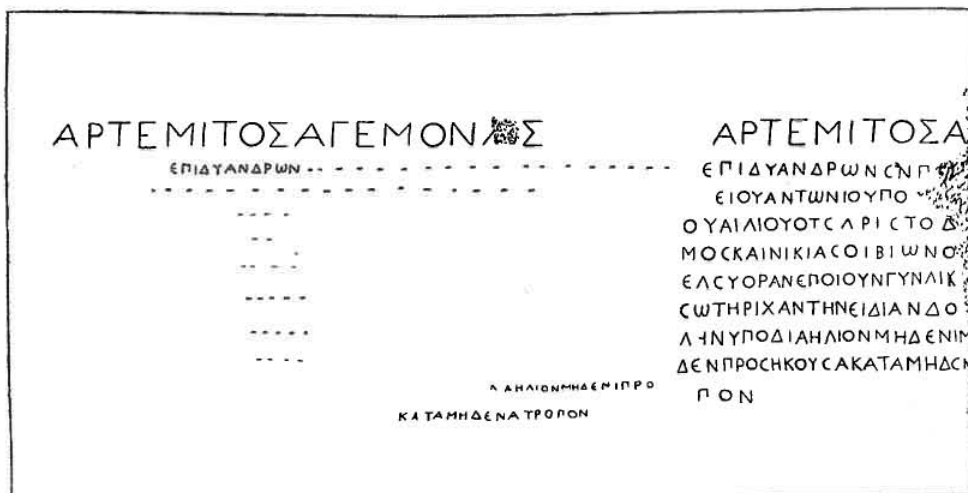 ΑΡΤΕΜΙΤΟΣΑΓΕΜΟΝΑΣ
ΕΠΙΔΥΑΝΔΡΩΝ
ΑΗΛΙΟΝΜΗΔΕΝΙΠΡΟ
ΚΑΤΑΜΗΔΕΝΑΤΡΟΠΟΝ
ΑΡΤΕΜΙΤΟΣΑ
ΕΠΙΔΥΑΝΔΡΩΝ
ΕΙΟΥΑΝΤΩΝΙΟΥΠΟ
ΟΥΑΙΛΙΟΥΟΤΕΑΡΙΣΤΟΔ
ΜΟΣΚΑΙΝΙΚΙΑΣΟΙΒΙΩΝΟ
ΕΛΕΥΟΡΑΝΕΠΟΙΟΥΝΓΥΝΑΙΚ
ΣΩΤΗΡΙΧΑΝΤΗΝΕΙΔΙΑΝΔΟ
ΛΗΝΥΠΟΔΙΑΗΛΙΟΝΜΗΔΕΝΙΜ
ΔΕΝΠΡΟΣΗΚΟΥΣΑΚΑΤΑΜΗΔΕΝ
ΠΟΝ